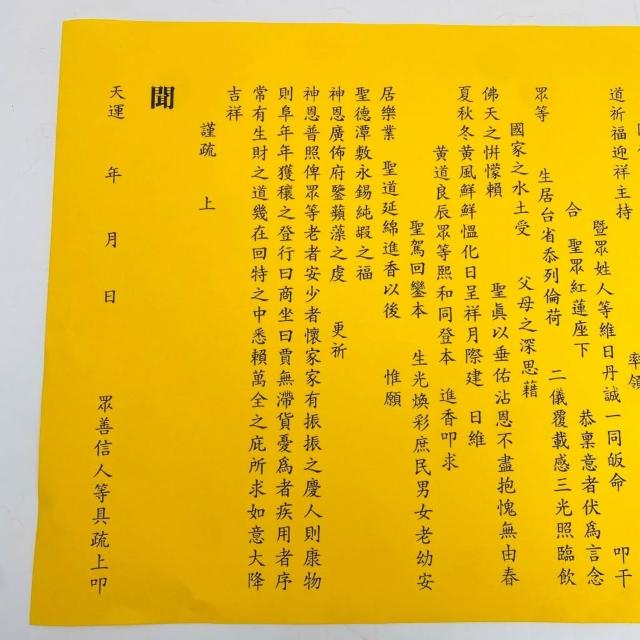 道祈福迎祥主持　率領
暨眾姓人等維日丹誠一同皈命　叩干
合　聖眾紅蓮座下　恭稟意者伏為言念
眾等　生居台省忝列倫荷　二儀覆載感三光照臨飲
國家之水土受　父母之深思藉
佛天之帡懞賴　聖眞以垂佑沾恩不盡抱愧無由春
夏秋冬黄風鮮鮮愠化日呈祥月際建　日維
黄道良辰眾等熙和同登本　進香叩求
聖駕回鑾本　生光煥彩庶民男女老幼安
居樂業　聖道延綿進香以後　惟願
聖德潭敷永錫純嘏之福
神恩廣佈府鑒蘋藻之虔　更祈
神恩普照俾眾等老者安少者懷家家有振振之慶人則康物
則阜年年獲穰之登行曰商坐曰賈無滯貨憂為者疾用者序
常有生財之道幾在回特之中悉賴萬全之庇所求如意大降
吉祥
謹疏　上
聞
天運　年　月　日　眾善信人等具疏上叩